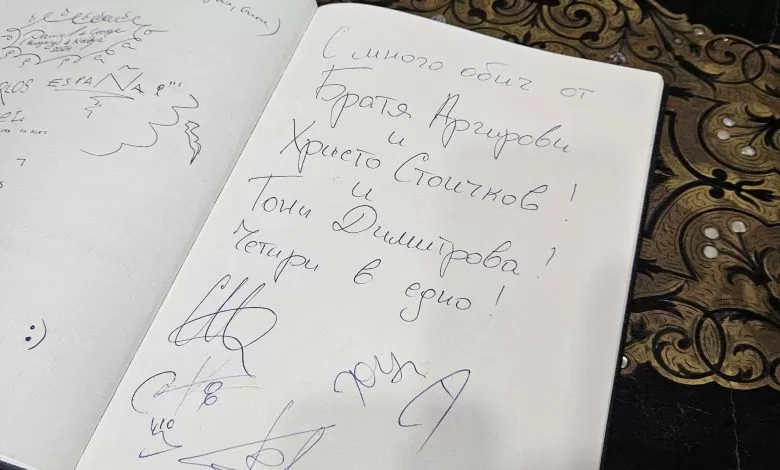 ESPAÑA
:)
С много обич от
Братя Аргирови
и
Христо Стоичков!
и
Тони Димитрова!
Четири в едно!